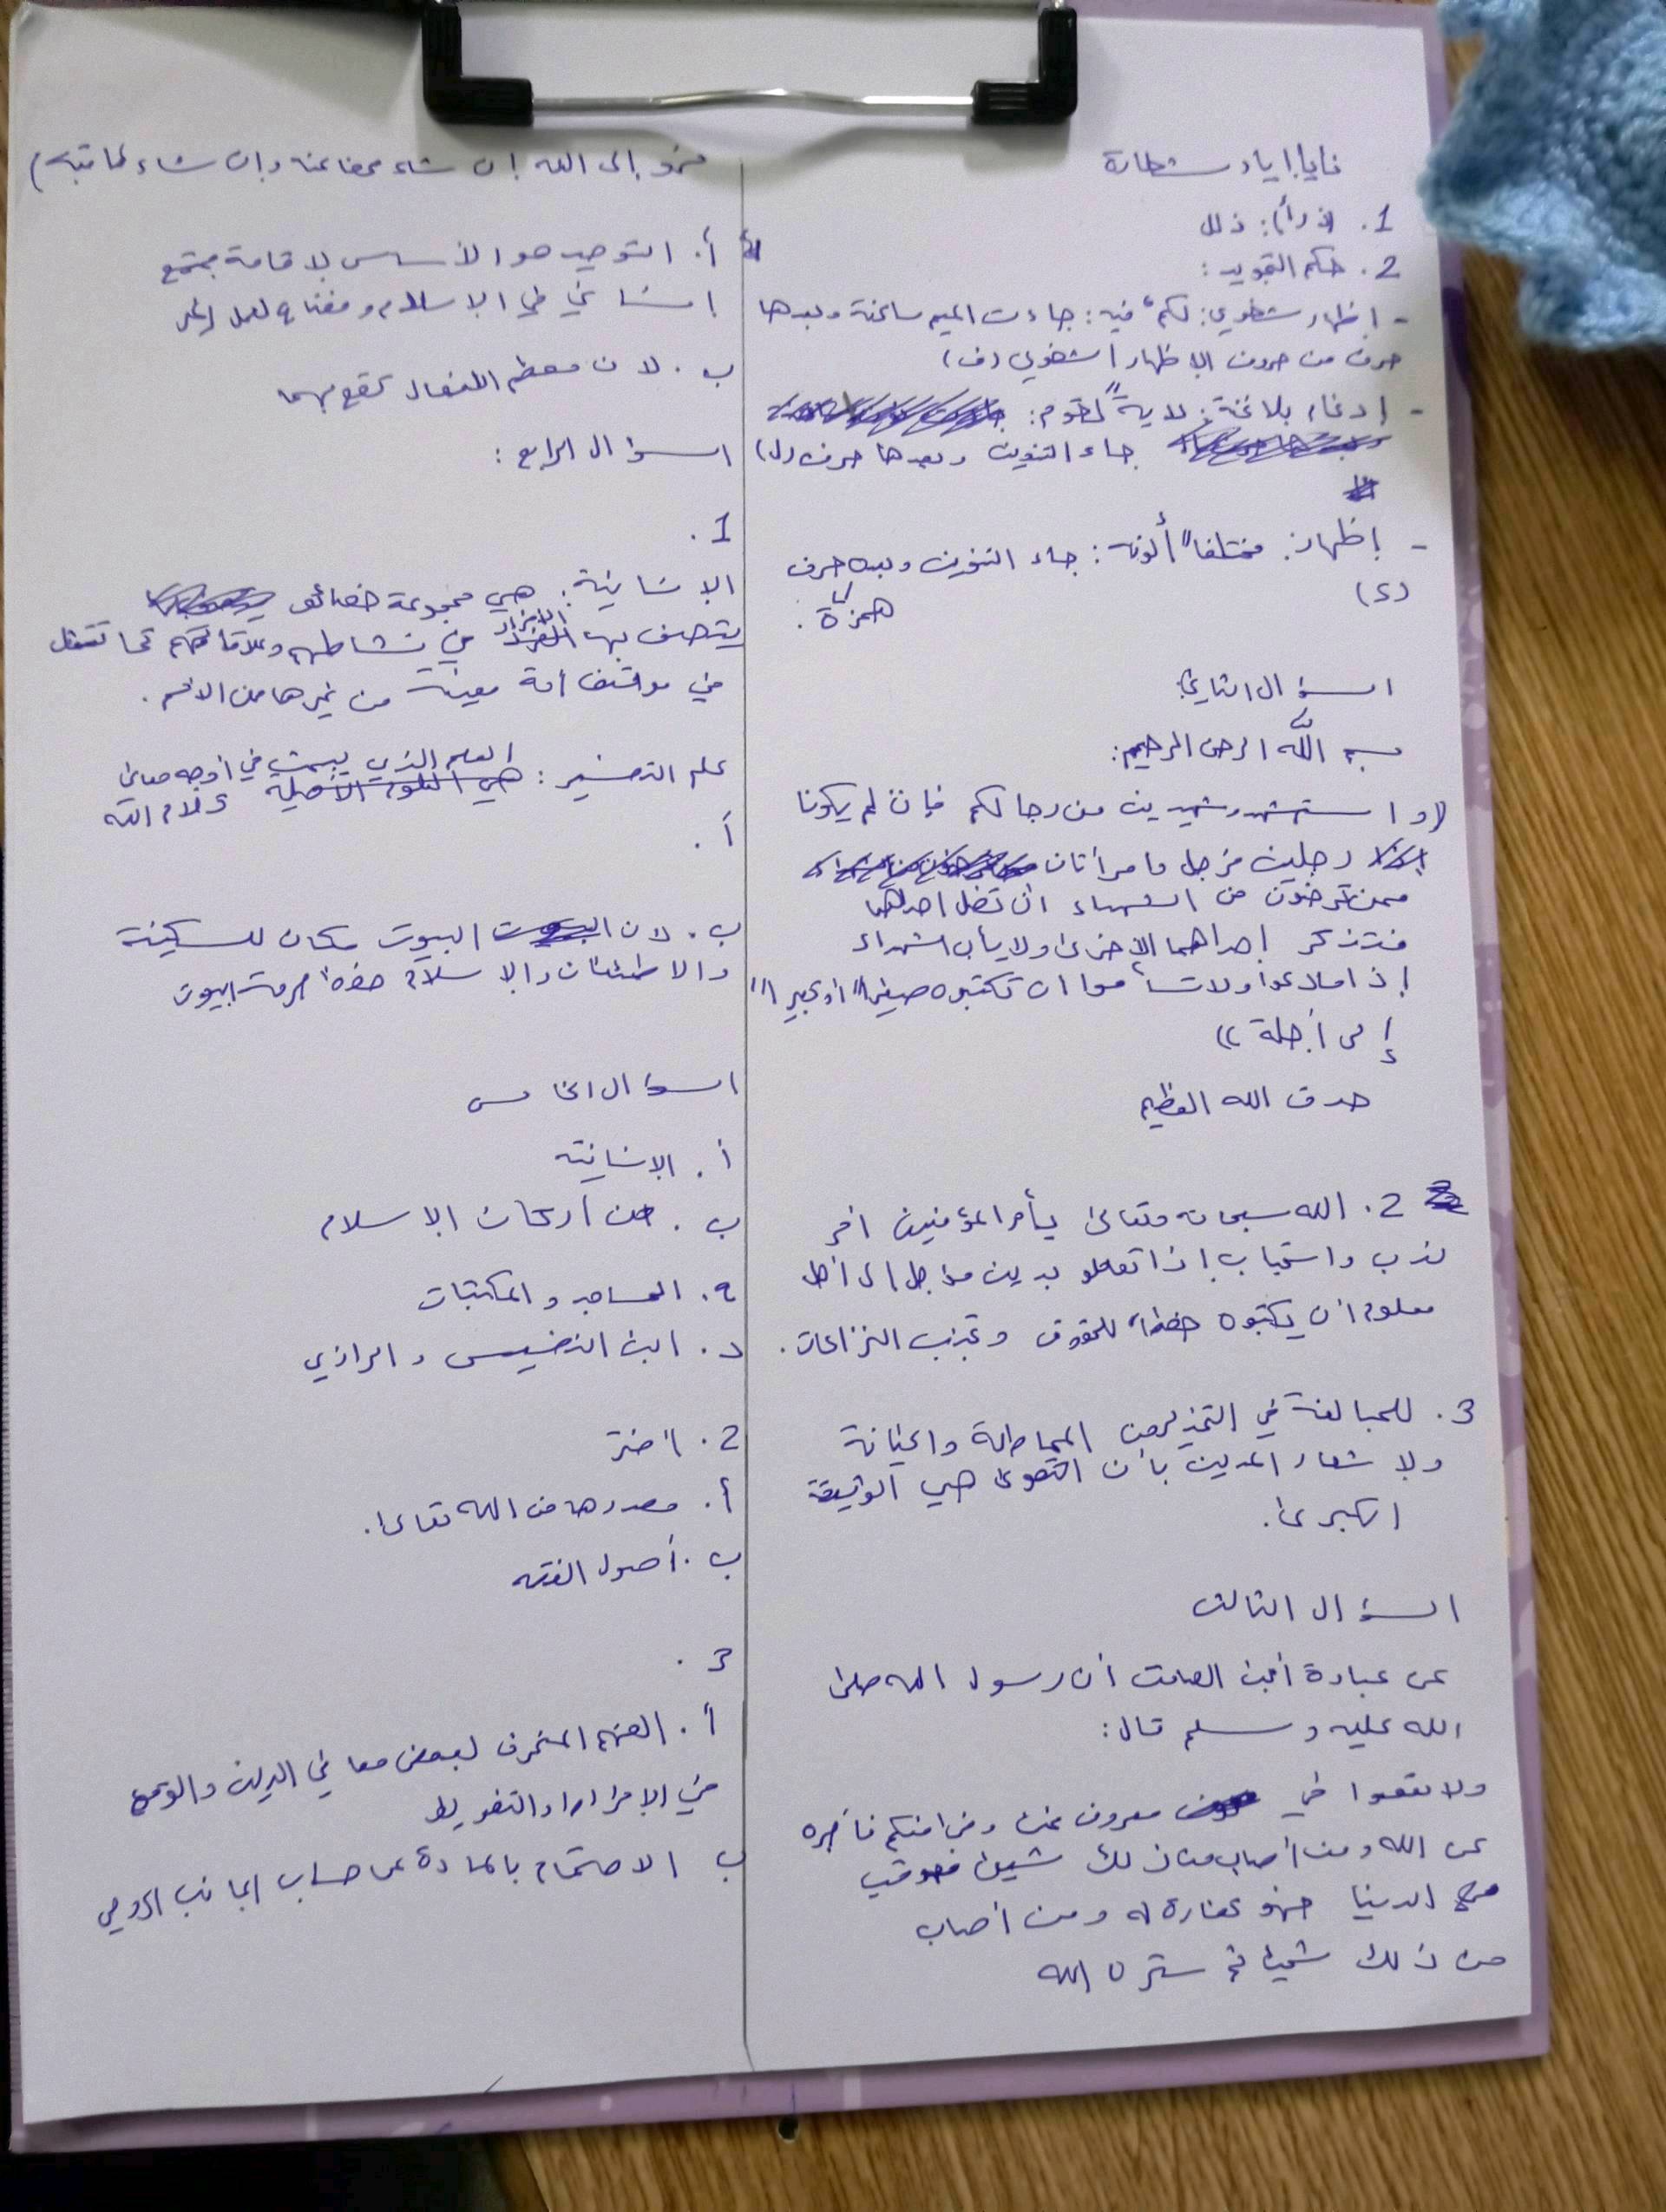 نايا اياد شطارة
1. (ذرأ): ذلل
2. حكم التجويد:
- اظهار شفوي: لكم فيه: جاءت الميم ساكنة وبعدها
حرف من حروف الاظهار الشفوي (ف)
- إدغام بلا غنة: لايةً لقوم:
جاء التنوين وبعدها حرف (ل)
- إظهار: مختلفاً ألونه: جاء التنوين وبعده حرف
(ء) همزة.
السؤال الثاني:
بسم الله الرحمن الرحيم:
(واستشهدو شهيدين من رجالكم فإن لم يكونا
رجلين فرجل وامرأتان
ممن ترضون من الشهداء ان تضل احداهما
فتذكر إحداهما الأخرى ولا يأب الشهداء
إذا ما دعوا ولا تسأموا ان تكتبوه صغيراً او كبيراً
إلى أجلة))
صدق الله العظيم
2. الله سبحانه وتعالى يأمر المؤمنين امر
ندب واستحباب إذا تعاملو بدين مؤجل الى أجل
معلوم ان يكتبوه حفظاً للحقوق وتجنب النزاعات.
3. للمبالغة في التحذير من المماطلة والخيانة
ولاشعار المدين بأن التقوى هي الوثيقة
الكبرى.
السؤال الثالث
عن عبادة ابن الصامت أن رسول الله صلى
الله عليه وسلم قال:
ولا تعصوا في معروف فمن وفى منكم فأجره
على الله ومن أصاب من ذلك شيئ فعوقب
في الدنيا فهو كفارة له ومن أصاب
من ذلك شيئا ثم ستره الله
فهو إلى الله إن شاء عفا عنه وإن شاء عاقبه)
أ. التوحيد هو الأساس لاقامة مجتمع
إنساني في الإسلام ومفتاح لعمل الخير
ب. لان معظم الافعال تقع بهما
السؤال الرابع:
1.
الانسانية: هي مجموعة خصائص
يتصف بها الافراد في نشاطهم وعلاقاتهم كما تتمثل
في مواقف أمة معينة من غيرها من الامم.
علم التفسير: العلم الذي يبحث في أوجه معاني
كلام الله
أ.
ب. لان البيوت مكان للسكينة
والاطمئنان والإسلام حفظ حرمت البيوت
السؤال الخامس
أ. الانسانية
ب. من أركان الإسلام
ج. المساجد والمكتبات
د. ابن النفيس والرازي
2. اختر
أ. مصدرها من الله تعالى.
ب. أصول الفقه
3.
أ. الفهم المنحرف لبعض معاني الدين والوقوع
في الإفراط والتفريط
ب الاهتمام بالمادة على حساب الجانب الروحي